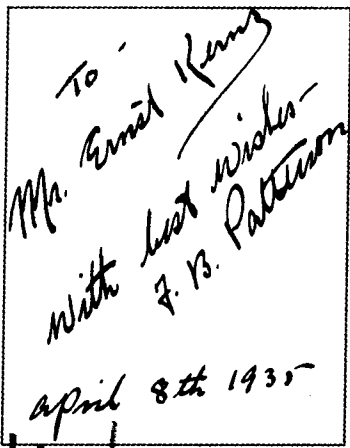 To -
Mr. Ernst Kern
with best wishes -
F. B. Patterson
april 8th 1935